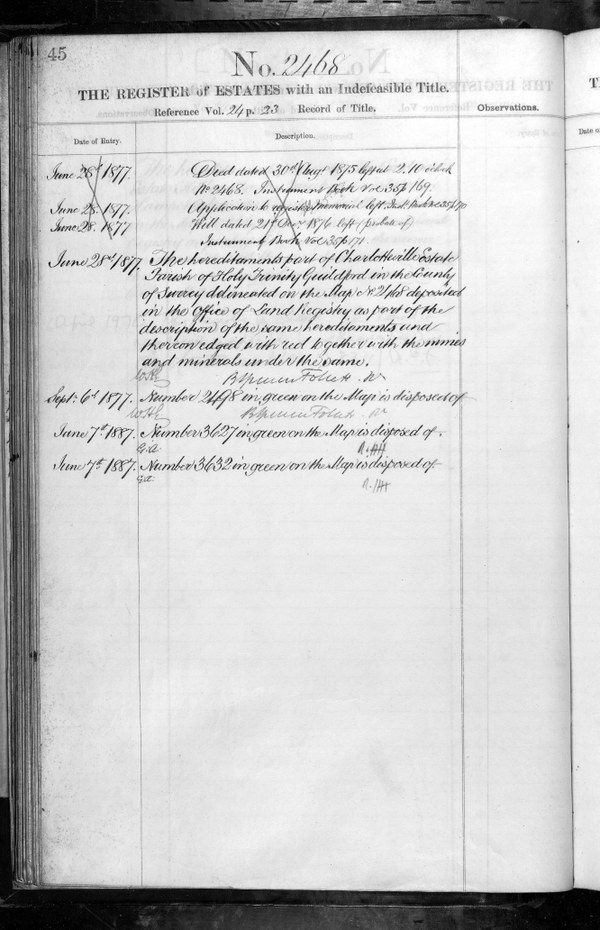 45
No. 2468
THE REGISTER of ESTATES with an Indefeasible Title.
Reference Vol. 24 p. 23 Record of Title.
Observations.
Date of Entry.
Description.
June 28th 1877. Deed dated 30th Augt 1875 left at 2.40 o'clock
No 2468. Instrument Book Vol 35 p 169.
June 28. 1877. Application to register Memorial left Inst. Book Vol 35 p 170
June 28. 1877 Will dated 21st Decr 1876 left (probate of)
Instrument Book Vol 35 p 171.
June 28th 1877. The hereditaments part of Charlottville Estate
Parish of Holy Trinity Guildford in the County
of Surrey delineated on the Map No 2468 deposited
in the Office of Land Registry as part of the
description of the same hereditaments and
thereon edged with red together with the mines
and minerals under the same.
Follett
Sept: 6th 1877. Number 2498 in green on the Map is disposed of
Follett
June 7th 1887. Number 3627 in green on the Map is disposed of.
June 7th 1887. Number 3632 in green on the Map is disposed of